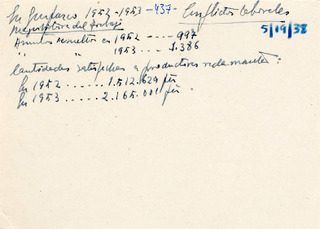 En Guipuzcoa 1952-1953 -437- Conflictos laborales
5/19/38
Magistratura del Trabajo
Asuntos resueltos en 1952 ---- 997
" " 1953 --- 1.386
Cantidades satisfechas a productores reclamantes:
En 1952 ...... 1.512.629 pts
En 1953 ...... 2.165.001 pts.